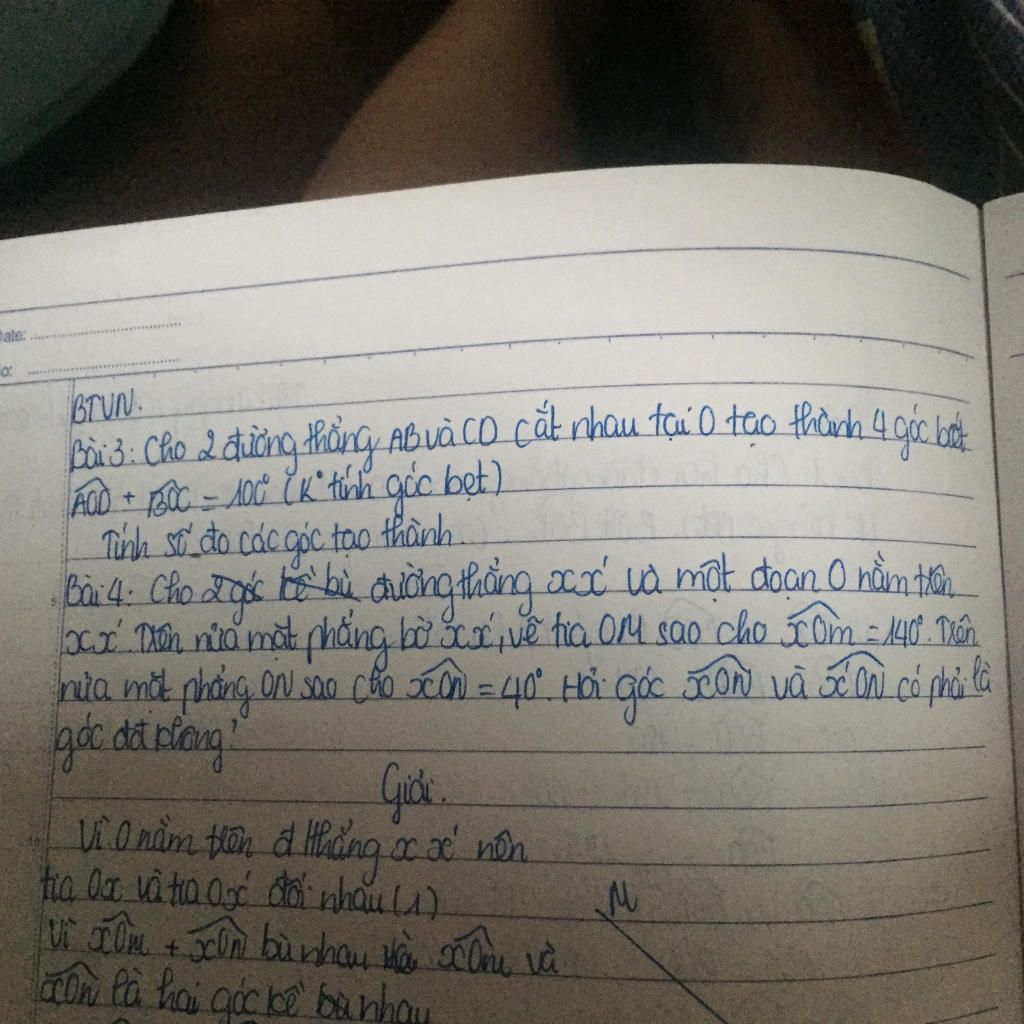 Date:
o:
BTVN.
Bài 3: Cho 2 đường thẳng AB và CD cắt nhau tại O tạo thành 4 góc biết
AOD + BOC = 100° (K° tính góc bẹt)
Tính số đo các góc tạo thành
Bài 4: Cho 2 góc kề bù đường thẳng xx' và một đoạn O nằm trên
xx'. Trên nửa mặt phẳng bờ xx', vẽ tia OM sao cho xOm = 140°. Trên
nửa mặt phẳng ON sao cho x'On = 40°. Hỏi góc xON và x'ON có phải là
góc đđ không?
Giải.
Vì O nằm trên đ thẳng xx' nên
tia Ox và tia Ox' đối nhau (1)
Vì xOm + xOn bù nhau xOm và
xOn là hai góc kề bù nhau
M